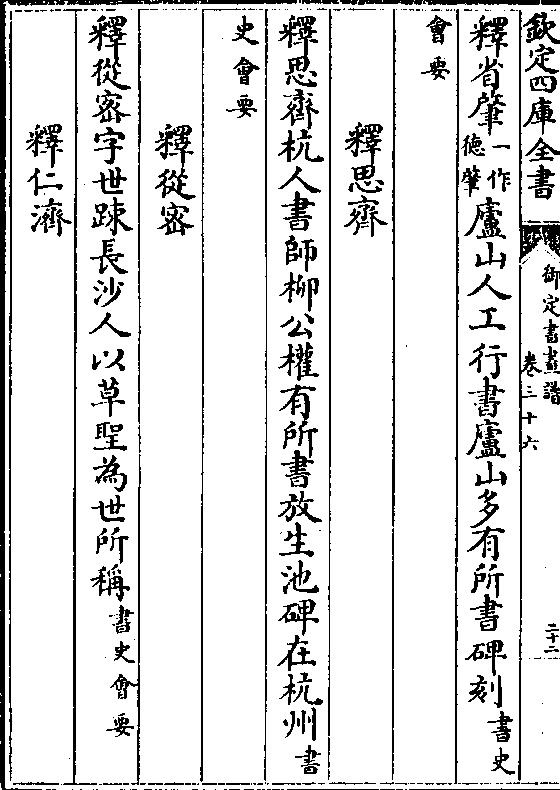 欽定四庫全書
御定書畫譜
卷三十六
二十二
釋省肇一作德肇廬山人工行書廬山多有所書碑刻書史
會要
釋思齊
釋思齊杭人書師柳公權有所書放生池碑在杭州書
史會要
釋從密
釋從密字世踈長沙人以草聖為世所稱書史會要
釋仁濟